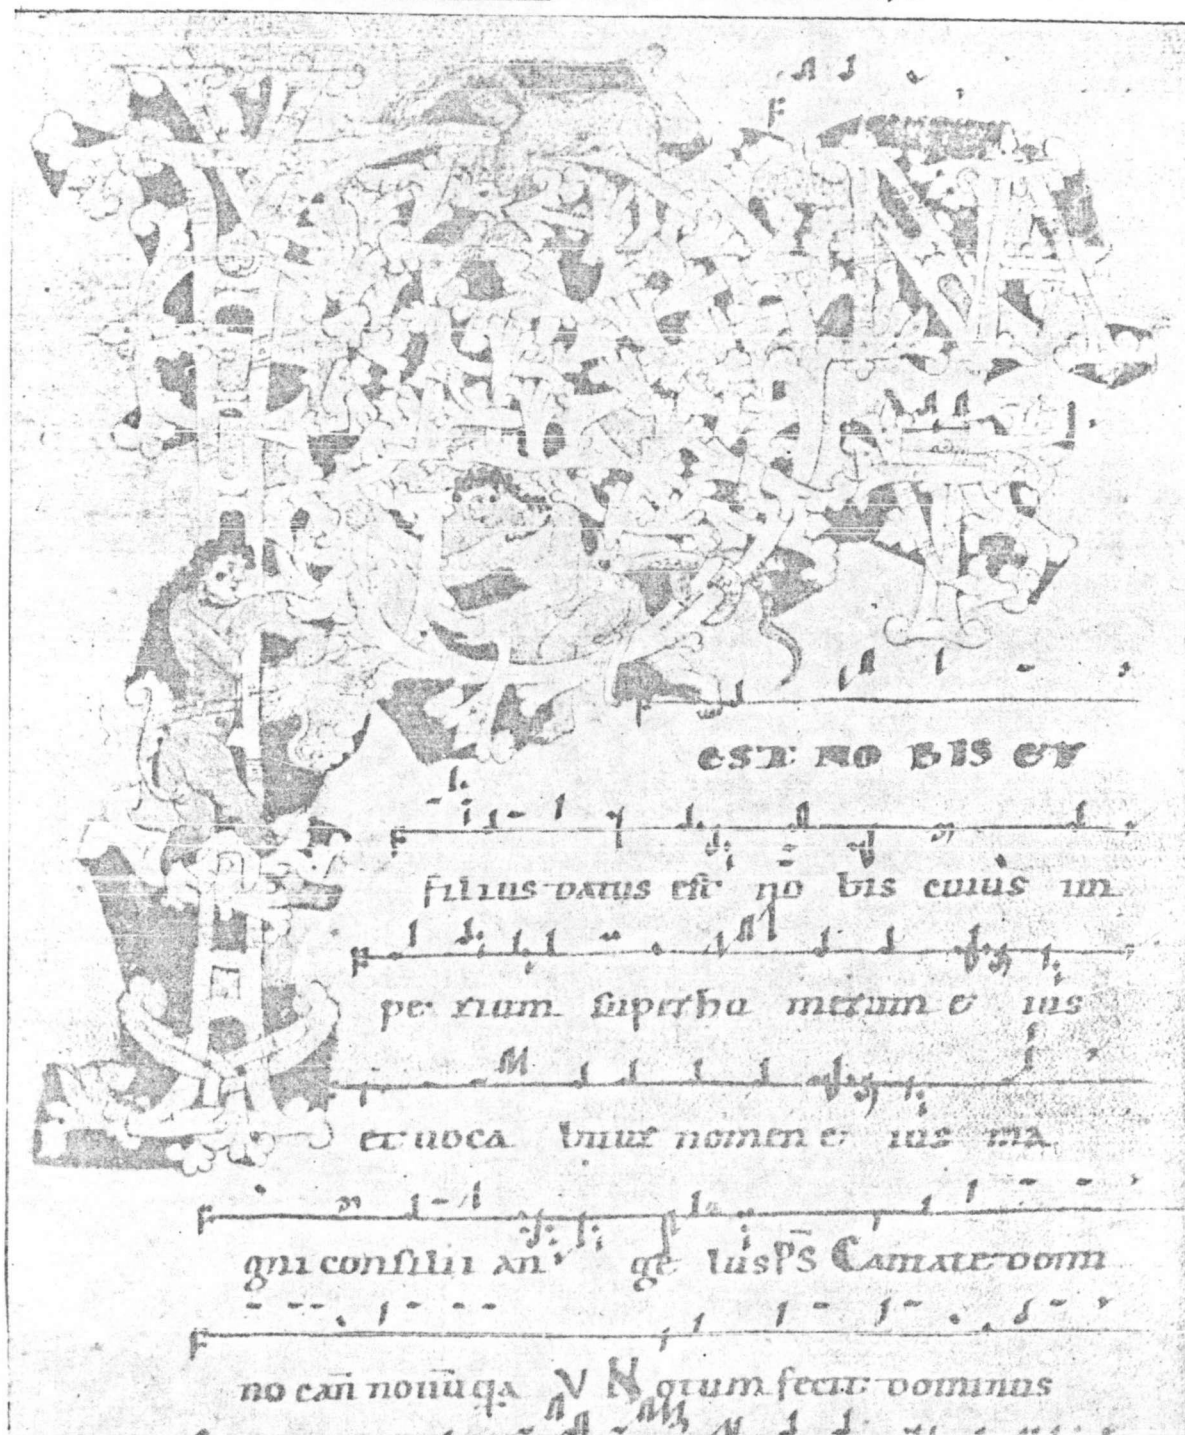 PUER NA
TUS
EST NO BIS ET
filius datus est no bis cuius im
pe rium super hu merum e ius
et uoca bitur nomen e ius ma
gni consilii an ge lus PS Cantate domi
no can̄ nouū q̄a V Notum fecit dominus